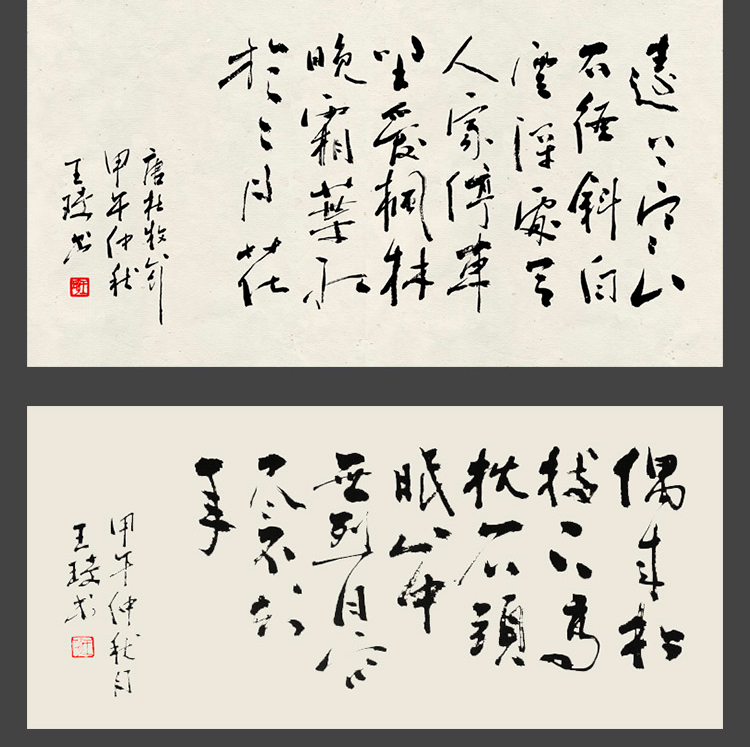 遠上寒山
石徑斜白
雲深處有
人家停車
坐愛楓林
晚霜葉紅
於二月花
唐杜牧
甲午仲秋
王书
偶来松
樹下高
枕石頭
眠山中
無烈日寒
尽不知
年
甲午仲秋月
王书